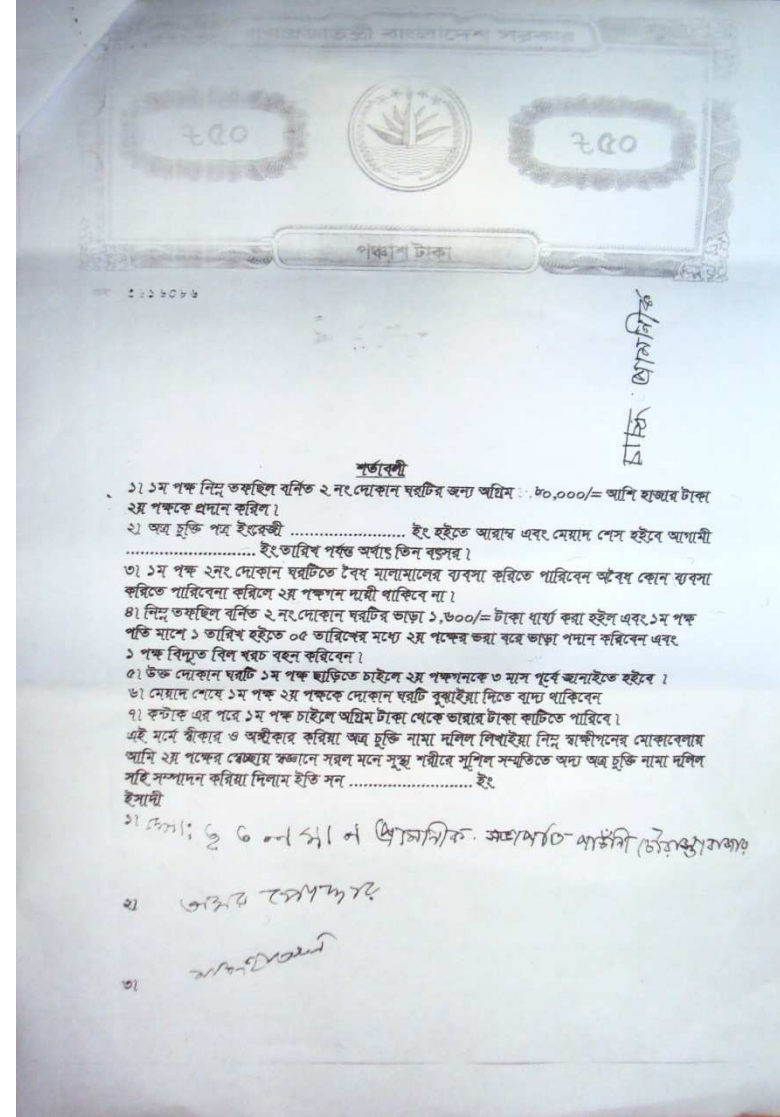 গণপ্রজাতন্ত্রী বাংলাদেশ সরকার
৳৫০ ৳৫০
পঞ্চাশ টাকা
প্রামানিক
শর্তাবলী
১। ১ম পক্ষ নিম্ন তফছিল বর্নিত ২ নং দোকান ঘরটির জন্য অগ্রিম ৮০,০০০/= আশি হাজার টাকা
২য় পক্ষকে প্রদান করিল।
২। অত্র চুক্তি পত্র ইংরেজী ........................ ইং হইতে আরাম্ব এবং মেয়াদ শেস হইবে আগামী
........................... ইং তারিখ পর্যন্ত অর্থাৎ তিন বত্সর।
৩। ১ম পক্ষ ২নং দোকান ঘরটিতে বৈধ মালামালের ব্যবসা করিতে পারিবেন অবৈধ কোন ব্যবসা
করিতে পারিবেনা করিলে ২য় পক্ষগন দায়ী থাকিবে না।
৪। নিম্ন তফছিল বর্নিত ২ নং দোকান ঘরটির ভাড়া ১,৬০০/= টাকা ধার্য্য করা হইল এবং ১ম পক্ষ
পতি মাশে ১ তারিখ হইতে ০৫ তারিখের মধ্যে ২য় পক্ষের ভরা বরে ভাড়া পদান করিবেন এবং
১ পক্ষ বিদ্যুত বিল খরচ বহন করিবেন।
৫। উক্ত দোকান ঘরটি ১ম পক্ষ ছাড়িতে চাইলে ২য় পক্ষগনকে ৩ মাস পূর্বে জানাইতে হইবে ।
৬। মেয়াদ শেষে ১ম পক্ষ ২য় পক্ষকে দোকান ঘরটি বুঝাইয়া দিতে বাদ্য থাকিবেন
৭। কন্টাক এর পরে ১ম পক্ষ চাইলে অগ্রিম টাকা থেকে ভারার টাকা কাটিতে পারিবে।
এই মর্মে স্বীকার ও অঙ্গীকার করিয়া অত্র চুক্তি নামা দলিল লিখাইয়া নিম্ন স্বাক্ষীগনের মোকাবেলায়
আমি ২য় পক্ষের স্বেচ্ছায় স্বজ্ঞানে সরল মনে সুস্থ শরীরে সুশিল সম্মতিতে অদ্য অত্র চুক্তি নামা দলিল
সহি সম্পাদন করিয়া দিলাম ইতি সন ........................ ইং
ইসাদী
১। মোঃ প্রামানিক সভাপতি
২।
৩।